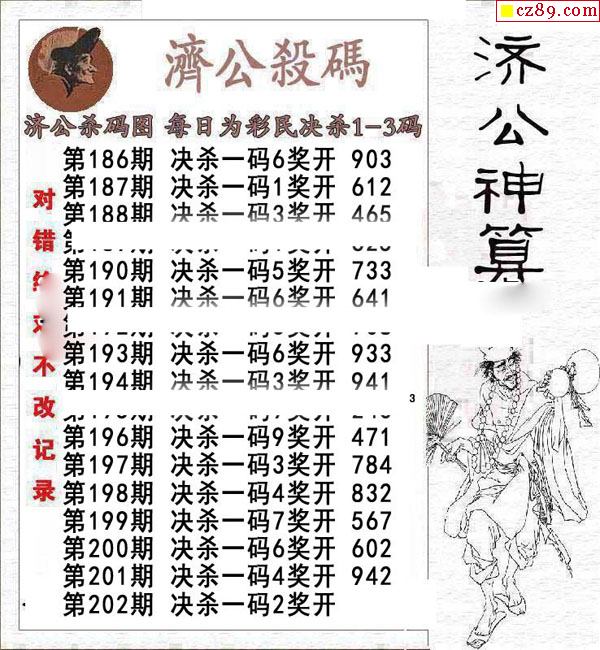 cz89.com
濟公殺碼
济公杀码图 每日为彩民决杀1-3码
第186期 决杀一码6奖开 903
第187期 决杀一码1奖开 612
第188期 决杀一码3奖开 465
第190期 决杀一码5奖开 733
第191期 决杀一码6奖开 641
第193期 决杀一码6奖开 933
第194期 决杀一码3奖开 941
第196期 决杀一码9奖开 471
第197期 决杀一码3奖开 784
第198期 决杀一码4奖开 832
第199期 决杀一码7奖开 567
第200期 决杀一码6奖开 602
第201期 决杀一码4奖开 942
第202期 决杀一码2奖开
对错 不改记录
3
济公神算